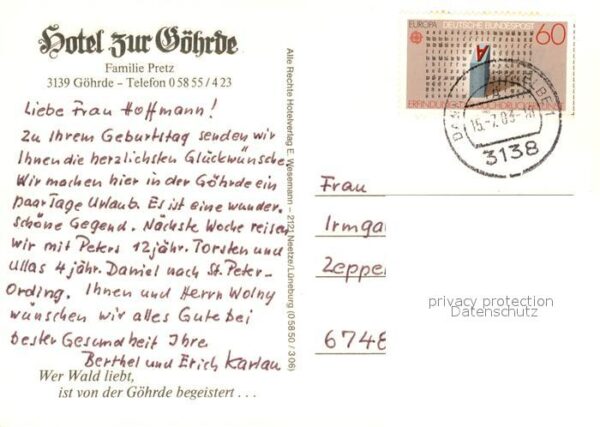 Hotel zur Göhrde
Familie Pretz
3139 Göhrde – Telefon 0 58 55 / 4 23
Liebe Frau Hoffmann!
Zu Ihrem Geburtstag senden wir
Ihnen die herzlichsten Glückwünsche.
Wir machen hier in der Göhrde ein
paar Tage Urlaub. Es ist eine wunder-
schöne Gegend. Nächste Woche reisen
wir mit Peters 12jähr. Torsten und
Ullas 4jähr. Daniel nach St. Peter-
Ording. Ihnen und Herrn Wolny
wünschen wir alles Gute bei
bester Gesundheit Ihre
Berthel und Erich Karlau
Wer Wald liebt,
ist von der Göhrde begeistert . . .
Alle Rechte Hotelverlag E. Wesemann – 2121 Neetze/Lüneburg (0 58 50 / 3 06)
EUROPA DEUTSCHE BUNDESPOST
60
A
15.-7.83
3138
Frau
Irmga
Zeppe
6748
privacy protection
Datenschutz